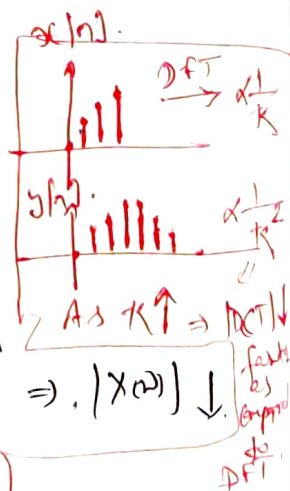 x[n].
DFT → ∝ 1/K
y[n].
∝ 1/K²
As K↑ ⇒ |DCT|↓
faster
as
compared
to
DFT
⇒ . |X(ω)| ↓